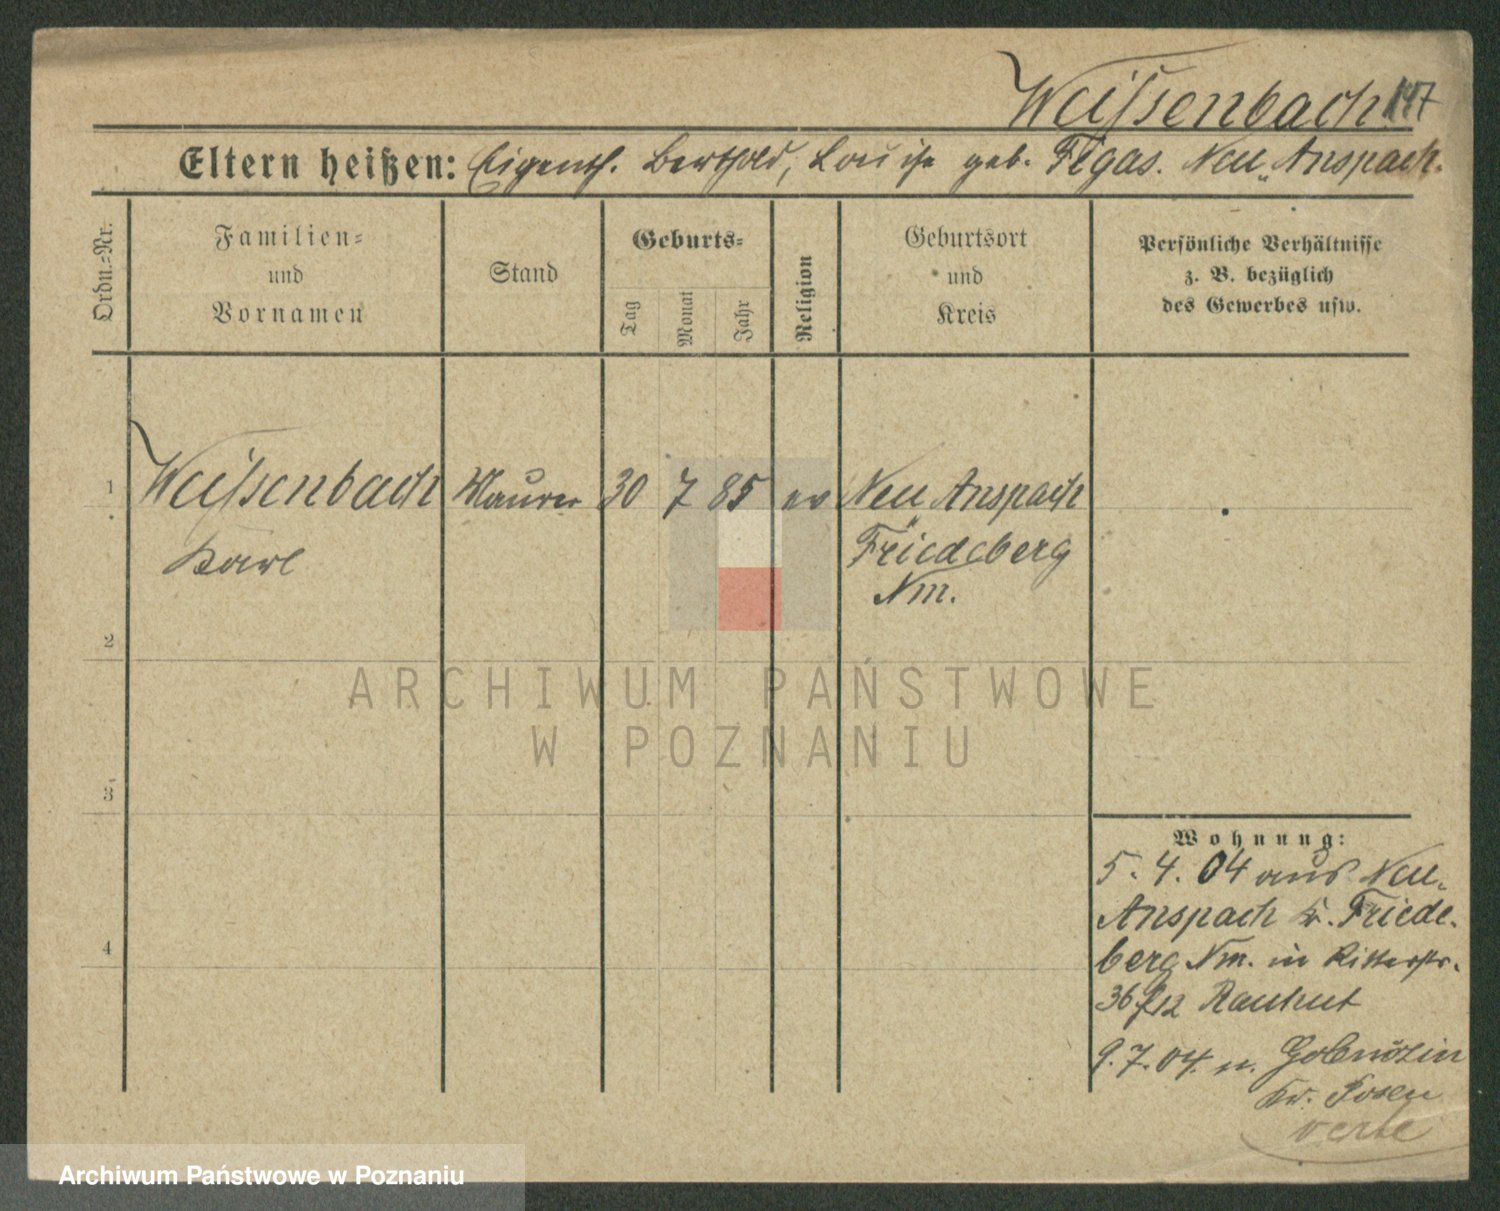 Weissenbach. 147
Eltern heißen: Eigenth. Berthold, Louise geb. Fegas. Neu Anspach.
Ordn.-Nr.
Familien-
und
Vornamen
Stand
Geburts-
Tag
Monat
Jahr
Religion
Geburtsort
und
Kreis
Persönliche Verhältnisse
z. B. bezüglich
des Gewerbes usw.
1 Weissenbach Maurer 30 7 85 ev Neu Anspach
Karl Friedeberg
Nm.
2
3
4
Wohnung:
5. 4. 04 aus Neu-
Anspach Kr. Friede-
berg Nm. in Ritterstr.
36 Rauhut
9. 7. 04. n.
Kr. Posen
verte
ARCHIWUM PAŃSTWOWE
W POZNANIU
Archiwum Państwowe w Poznaniu